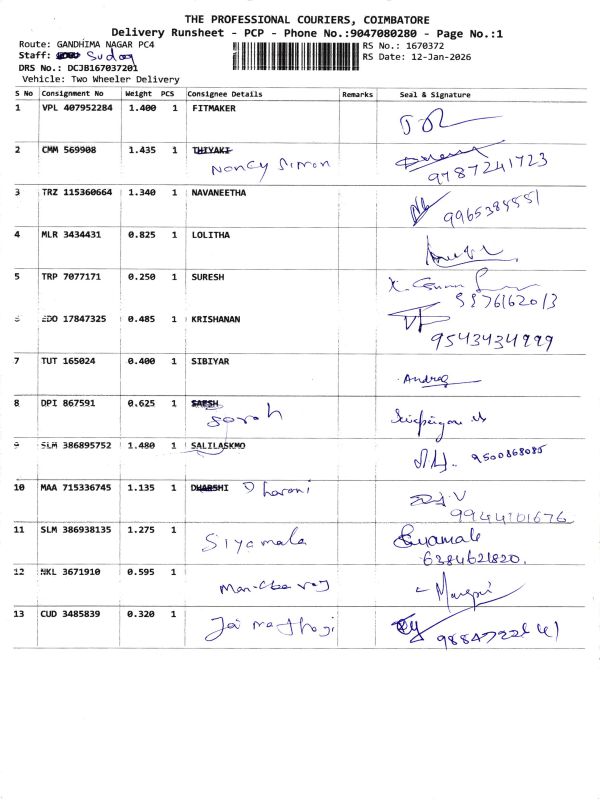 THE PROFESSIONAL COURIERS, COIMBATORE
Delivery Runsheet - PCP - Phone No.:9047080280 - Page No.:1
Route: GANDHIMA NAGAR PC4 RS No.: 1670372
Staff: RS Date: 12-Jan-2026
DRS No.: DCJB167037201
Vehicle: Two Wheeler Delivery
S No Consignment No Weight PCS Consignee Details Remarks Seal & Signature
1 VPL 407952284 1.400 1 FITMAKER
2 CMM 569908 1.435 1 THIYAKI
Nancy Simon
9787241723
3 TRZ 115360664 1.340 1 NAVANEETHA
9965384551
4 MLR 3434431 0.825 1 LOLITHA
5 TRP 7077171 0.250 1 SURESH
6 EDO 17847325 0.485 1 KRISHANAN
9543434999
7 TUT 165024 0.400 1 SIBIYAR
Andrea
8 DPI 867591 0.625 1
Sarah
9 SLM 386895752 1.480 1 SALILASKMO
9500868085
10 MAA 715336745 1.135 1 DHARSHI Dharani
9944101676
11 SLM 386938135 1.275 1
Siyamala Syamala
6384621820.
12 NKL 3671910 0.595 1
13 CUD 3485839 0.320 1